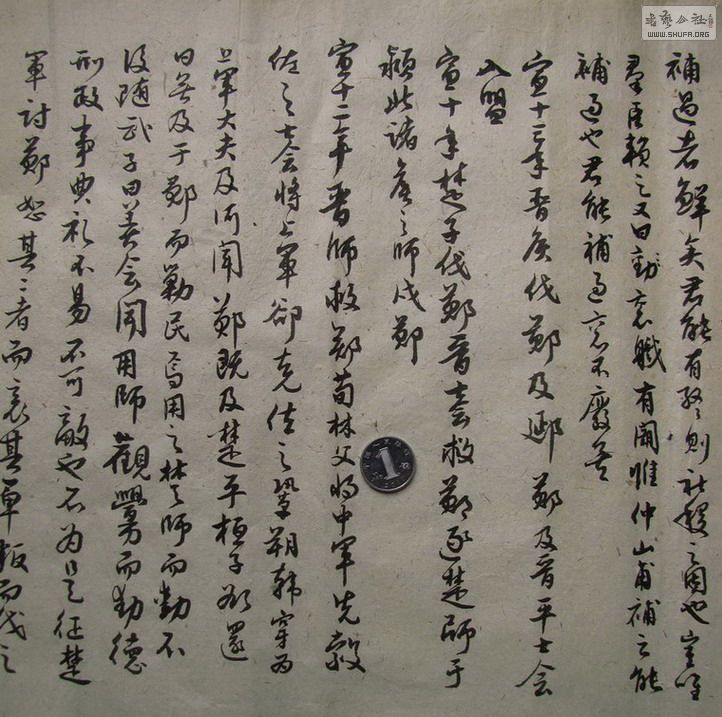 補過者鮮矣君能有終則社稷之固也豈唯
羣臣賴之又曰袞職有闕惟仲山甫補之能
補過也君能補過袞不廢矣
宣十二年晉侯伐鄭及郔鄭及晉平士會
入盟
宣十年楚子伐鄭晉士會救鄭逐楚師于
潁北諸侯之師戍鄭
宣十二年晉師救鄭荀林父將中軍先縠
佐之士會將上軍郤克佐之鞏朔韓穿為
上軍大夫及河聞鄭既及楚平桓子欲還
曰無及于鄭而勦民焉用之楚師而動不
後隨武子曰善會聞用師觀釁而動德
刑政事典禮不易不可敵也不為是征楚
軍討鄭怒其者而哀其卑叛而伐之
書藝公社
WWW.SHUFA.ORG
1